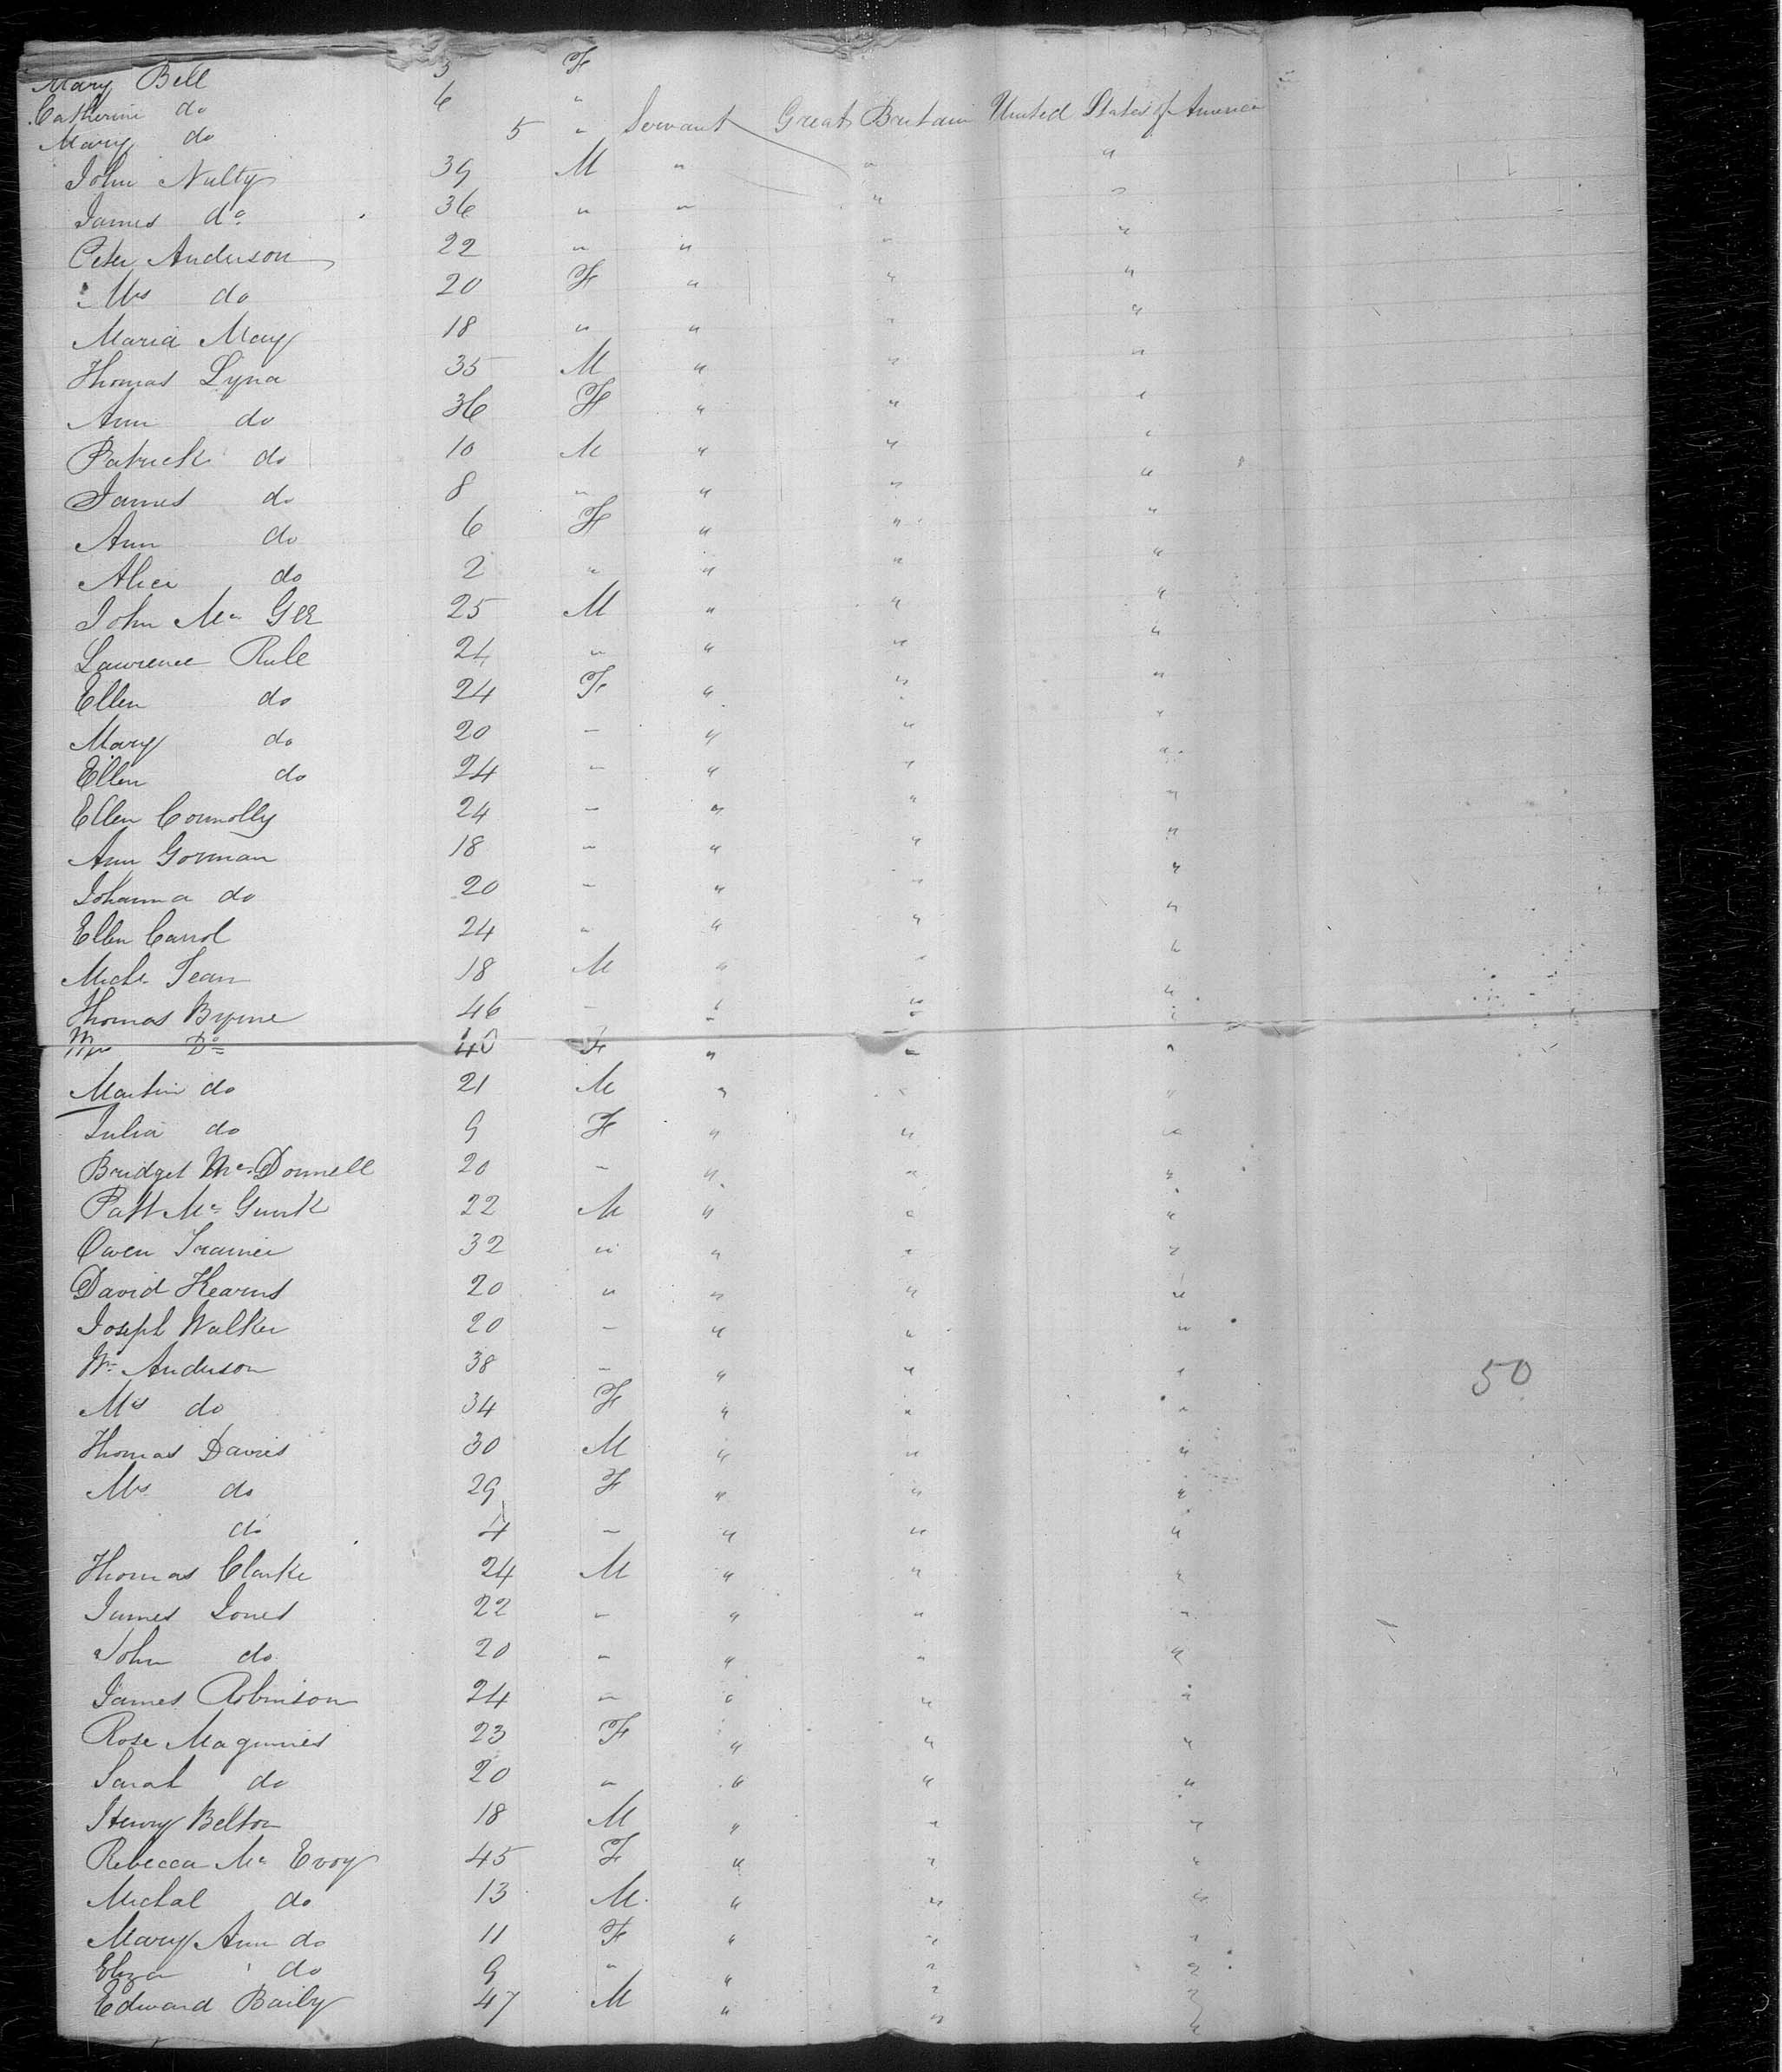 Mary Bell 3 F
Catherine do 6 "
Mary do 5 " Servant Great Britain United States of America
John Nulty 39 M " " "
James do 36 " " " "
Peter Anderson 22 " " " "
Mrs do 20 F " " "
Maria May 18 " " " "
Thomas Lyna 35 M " " "
Ann do 36 F " " "
Patrick do 10 M " " "
James do 8 " " " "
Ann do 6 F " " "
Alice do 2 " " " "
John Mc Gee 25 M " " "
Lawrence Rule 24 " " " "
Ellen do 24 F " " "
Mary do 20 – " " "
Ellen do 24 – " " "
Ellen Connolly 24 – " " "
Ann Gorman 18 – " " "
Johanna do 20 – " " "
Ellen Carrol 24 " " " "
Michl Jean 18 M " " "
Thomas Byrne 46 – " " "
Mrs Do 40 F " " "
Martin do 21 M " " "
Julia do 9 F " " "
Bridget Mc Donnell 20 – " " "
Patt Mc Gurk 22 M " " "
Owen Trainer 32 " " " "
David Kearns 20 " " " "
Joseph Walker 20 – " " "
Wm Anderson 38 – " " " 50
Mrs do 34 F " " "
Thomas Davies 30 M " " "
Mrs do 29 F " " "
do 4 – " " "
Thomas Clarke 24 M " " "
James Jones 22 – " " "
John do 20 " " " "
James Robinson 24 " " " "
Rose Maginnes 23 F " " "
Sarah do 20 " " " "
Henry Belton 18 M " " "
Rebecca Mc Evoy 45 F " " "
Michal do 13 M " " "
Mary Ann do 11 F " " "
Eliza do 9 " " " "
Edward Baily 47 M " " "